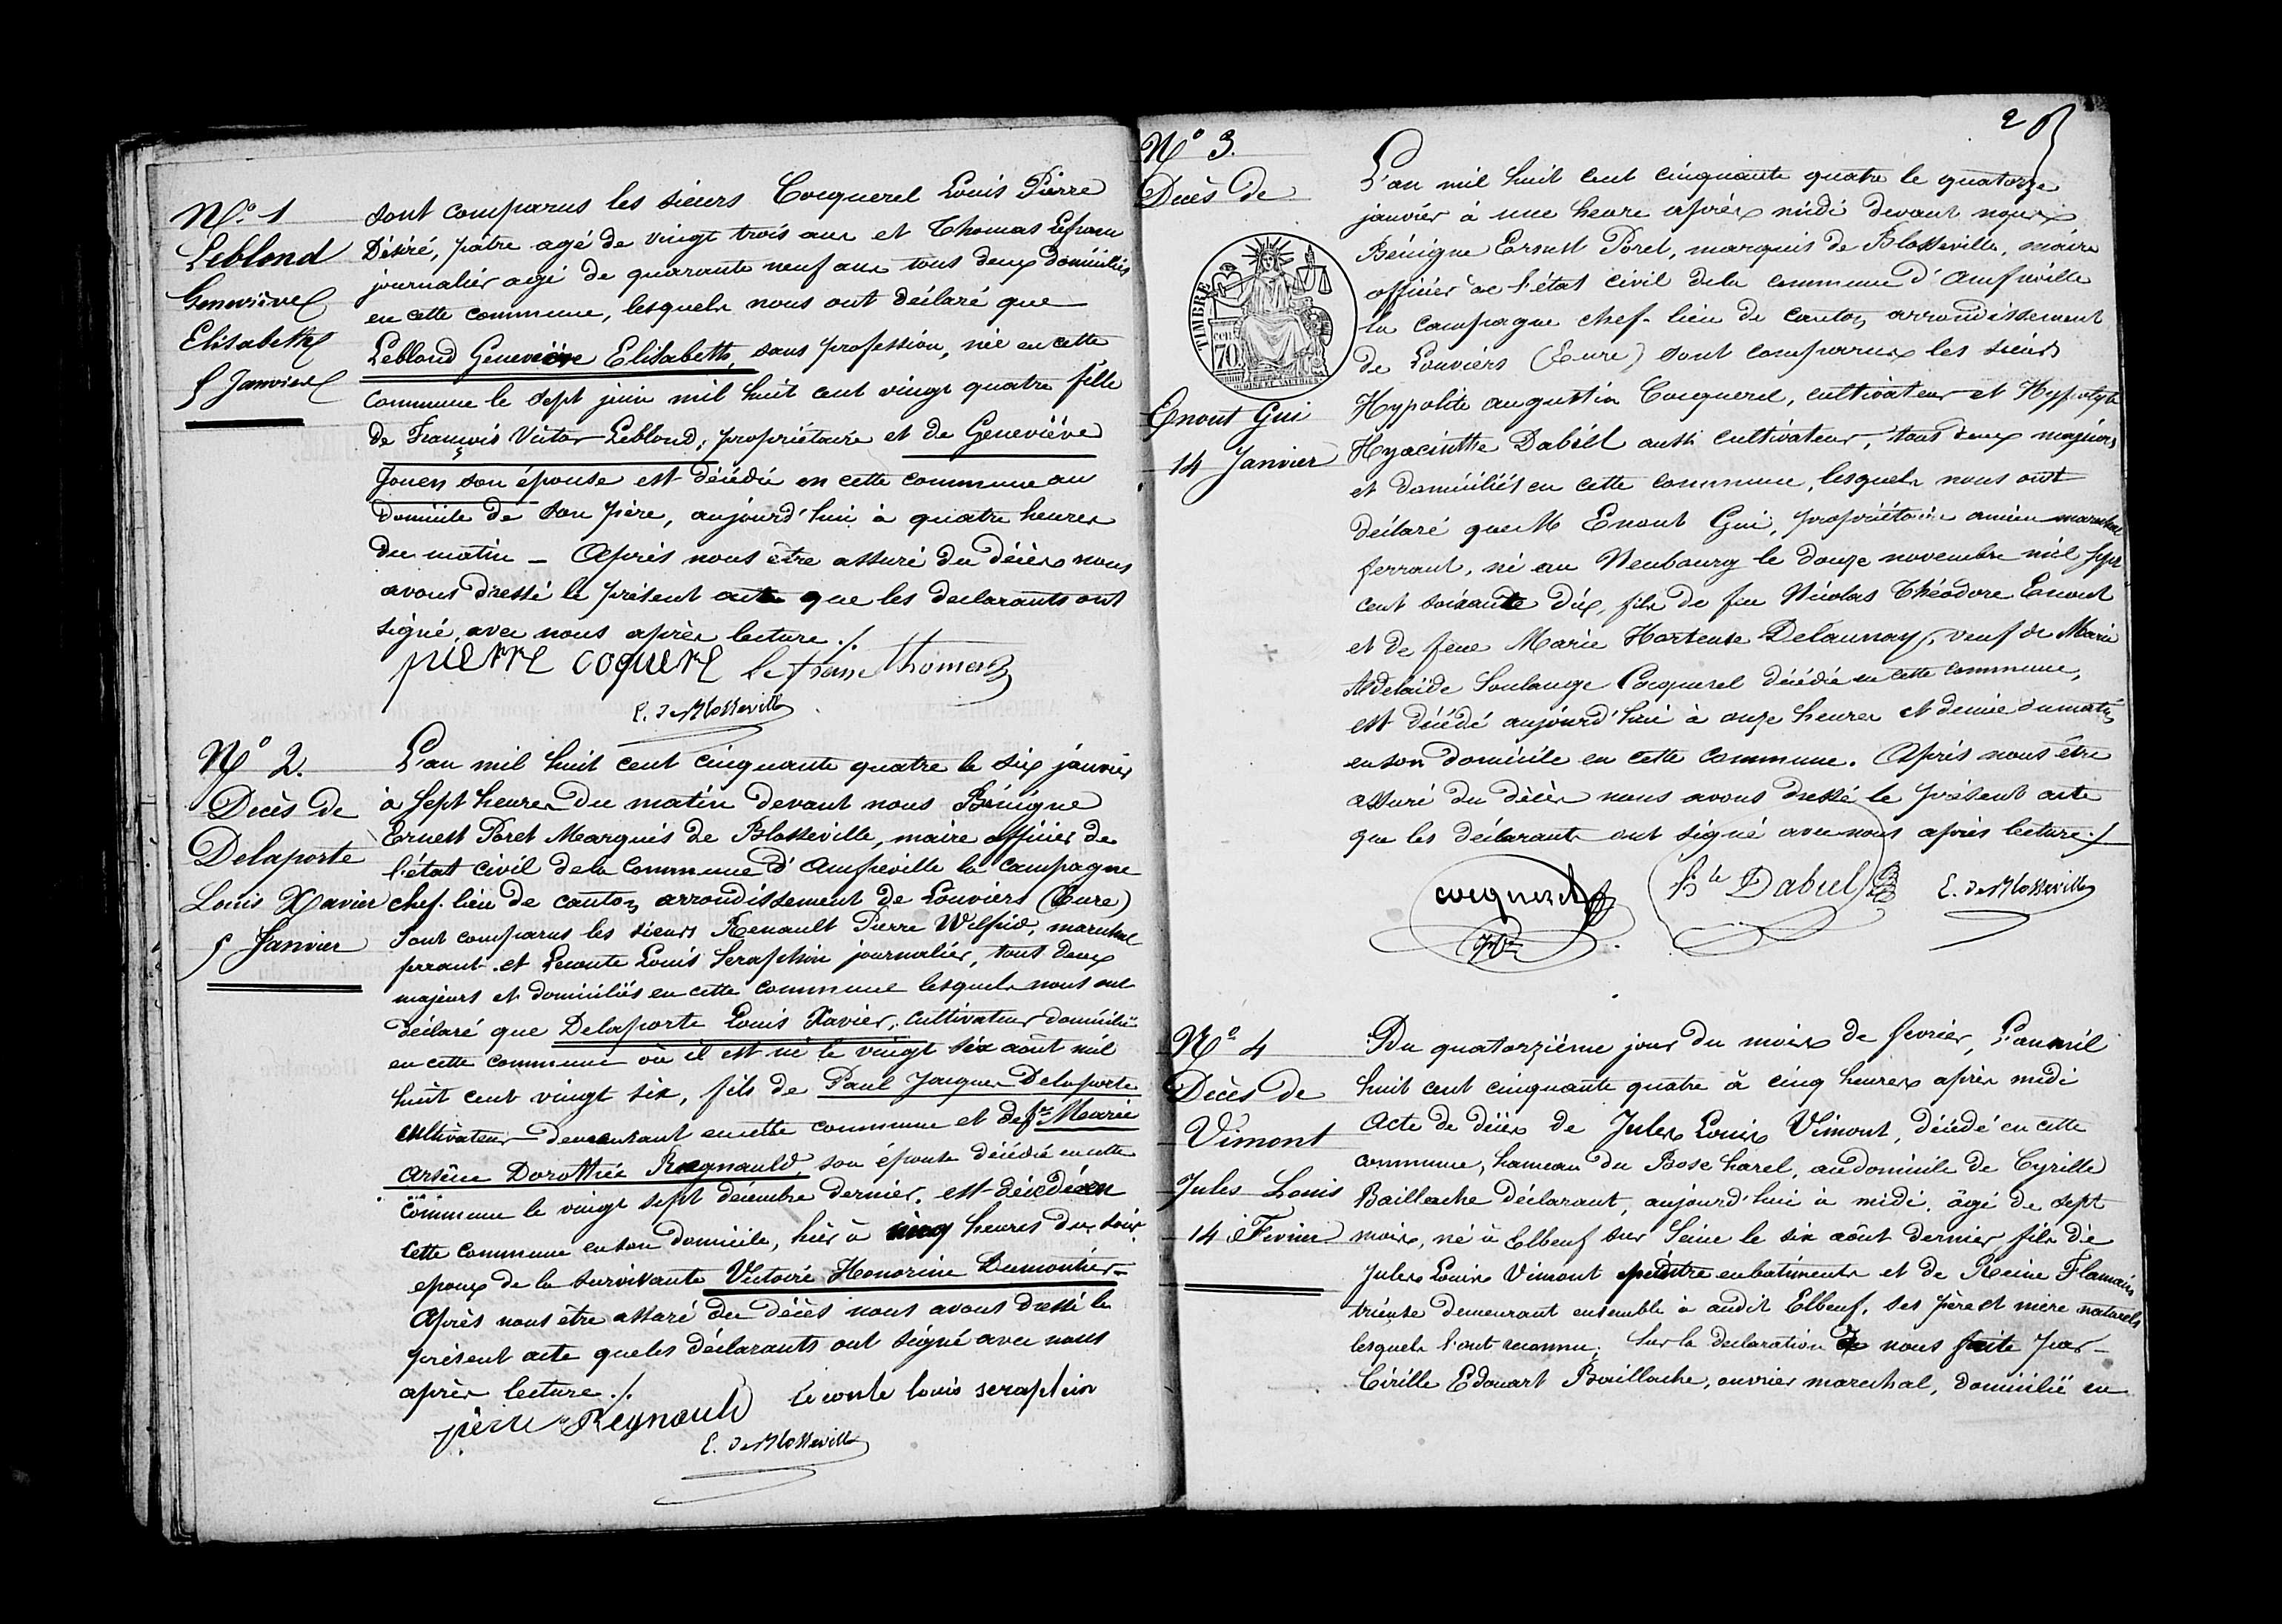 N.° 1
Leblond
Geneviève
Elisabeth
5 Janvier
sont comparus les sieurs Cocquerel Louis Pierre
Désiré, pâtre agé de vingt trois ans et Thomas Lefranc
journalier agé de quarante neuf ans tous deux domiciliés
en cette commune, lesquels nous ont déclaré que
Leblond Geneviève Elisabeth, sans profession, née en cette
commune le sept juin mil huit cent vingt quatre fille
de François Victor Leblond, propriétaire et de Geneviève
Jouen son épouse est décédée en cette commune au
domicile de son père, aujourd'hui à quatre heures
du matin – Après nous être assuré du décès nous
avons dressé le présent acte que les declarants ont
signé, avec nous après lecture ./.
pierre coquerel lefranc thomas
E. de Blosseville
N° 2.
Decès de
Delaporte
Louis Xavier
5 Janvier
L'an mil huit cent cinquante quatre le six janvier
à sept heures du matin devant nous Bénigne
Ernest Poret Marquis de Blosseville, maire officier de
l'état civil de la commune d'Amfreville la campagne
chef-lieu de canton arrondissement de Louviers (Eure)
sont comparus les sieurs Renault Pierre Wilfrid, marechal
ferrant et Leconte Louis Seraphin journalier, tous deux
majeurs et domiciliés en cette commune lesquels nous ont
déclaré que Delaporte Louis Xavier, cultivateur domicilié
en cette commune où il est né le vingt six août mil
huit cent vingt six, fils de Paul Jacques Delaporte
cultivateur demeurant en cette commune et de Marie
Arsène Dorothée Regnauld, son épouse décédée en cette
commune le vingt sept décembre dernier, est décédé en
cette commune en son domicile, hier à cinq heures du soir
epoux de la survivante Victoire Honorine Dumontier –
Après nous être assuré du décès nous avons dressé le
présent acte que les déclarants ont signé avec nous
après lecture ./.
pierre Reynauld leconte louis seraphin
E. de Blosseville
2
N° 3.
Decès de
TIMBRE
70
Enout Gui
14 Janvier
L'an mil huit cent cinquante quatre le quatorze
janvier à une heure après midi devant nous
Bénigne Ernest Poret, marquis de Blosseville, maire
officier de l'état civil de la commune d'Amfreville
la campagne chef-lieu de canton arrondissement
de Louviers (Eure) sont comparus les sieurs
Hypolite augustin Cocquerel, cultivateur et Hyppolyte
Hyacinthe Dabel aussi cultivateur, tous deux majeurs
et domiciliés en cette commune, lesquels nous ont
déclaré que M Enout Gui, propriétaire ancien marechal
ferrant, né au Neubourg le douze novembre mil sept
cent soixante dix, fils de feu Nicolas Théodore Enout
et de feue Marie Hortense Delaunay, veuf de Marie
Adelaïde Soulange Cocquerel décédée en cette commune,
est décédé aujourd'hui à onze heures et demie du matin
en son domicile en cette commune. Après nous être
assuré du décès nous avons dressé le présent acte
que les déclarants ont signé avec nous après lecture ./.
cocquerel hte Dabel E. de Blosseville
N° 4
Decès de
Vimont
Jules Louis
14 Fevrier
Du quatorzième jour du mois de fevrier, L'an mil
huit cent cinquante quatre à cinq heures après midi
Acte de décès de Jules Louis Vimont, décédé en cette
commune, hameau du Bosc harel, au domicile de Cyrille
Baillache déclarant, aujourd'hui à midi, âgé de sept
mois, né à Elbeuf sur Seine le six août dernier fils de
Jules Louis Vimont peintre en batiments et de Reine Flamain
trieuse demeurant ensemble à audit Elbeuf, ses père et mère naturels
lesquels l'ont reconnu; Sur la declaration à nous faite par
Cirille Edouart Baillache, ouvrier marechal, domicilié en